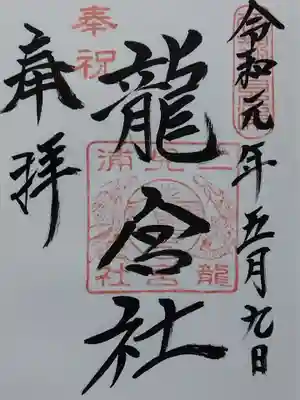 令和元年五月九日
龍宮社
奉拝
奉祝
二見浦
龍宮社